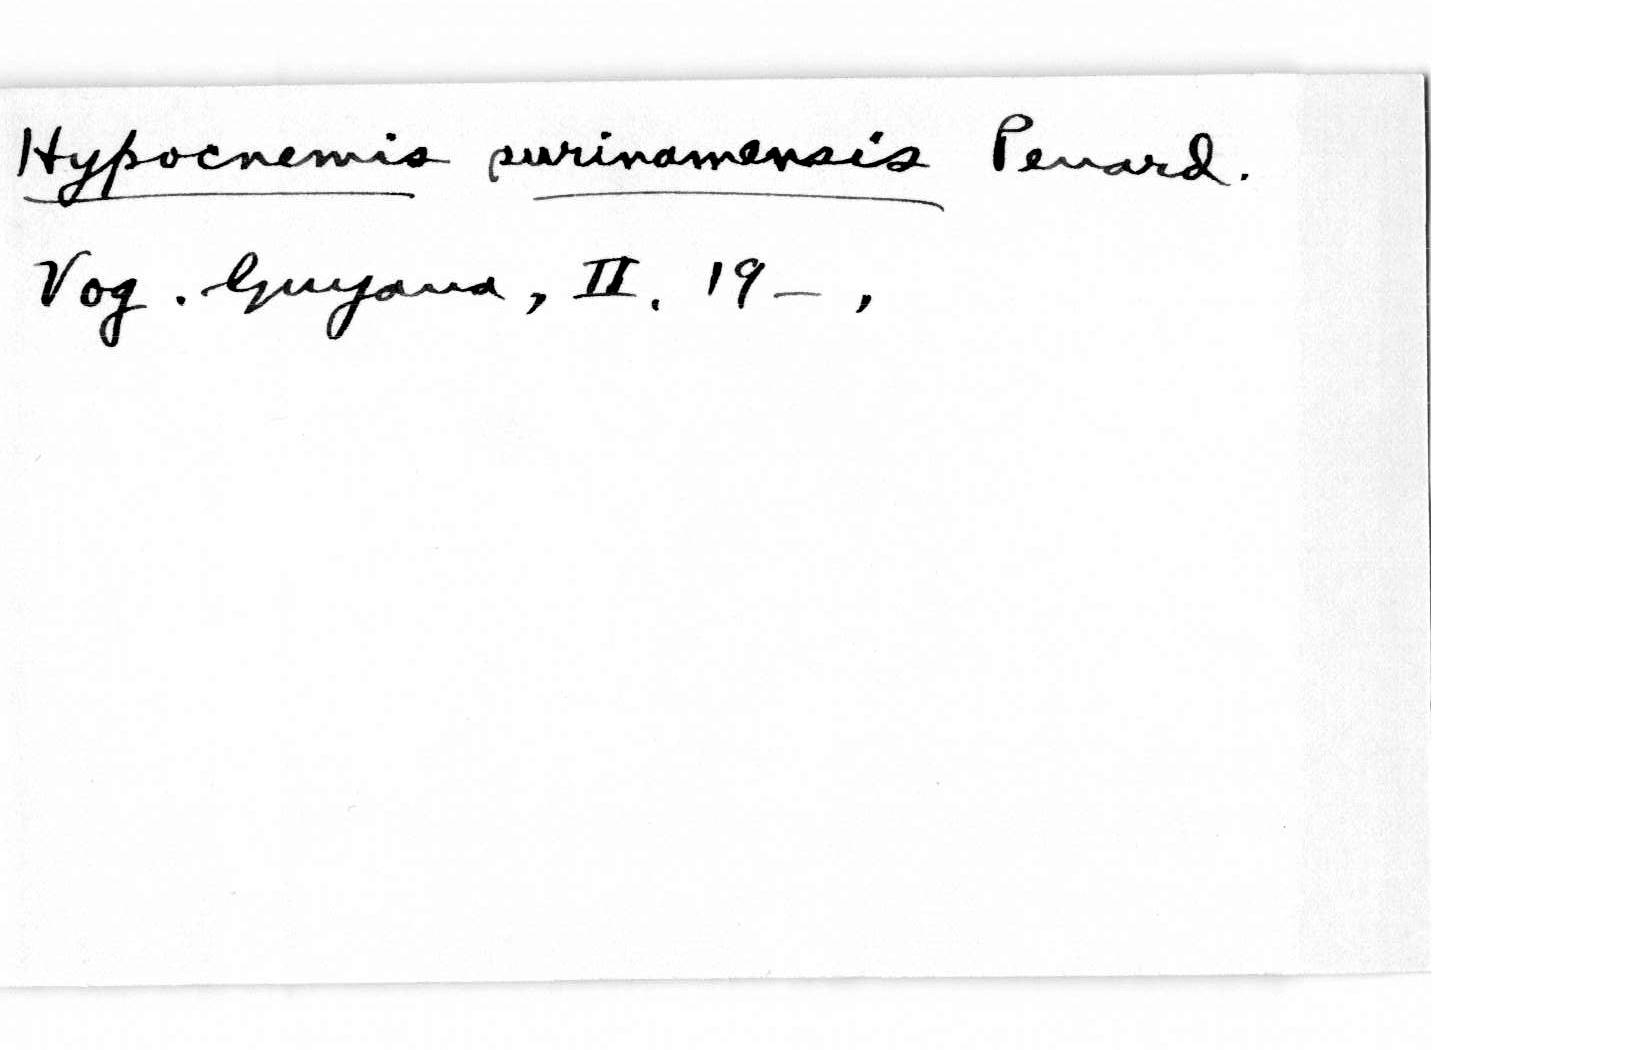 Hypocnemis surinamensis Penard.
Vog. Guyana, II. 19_ ,